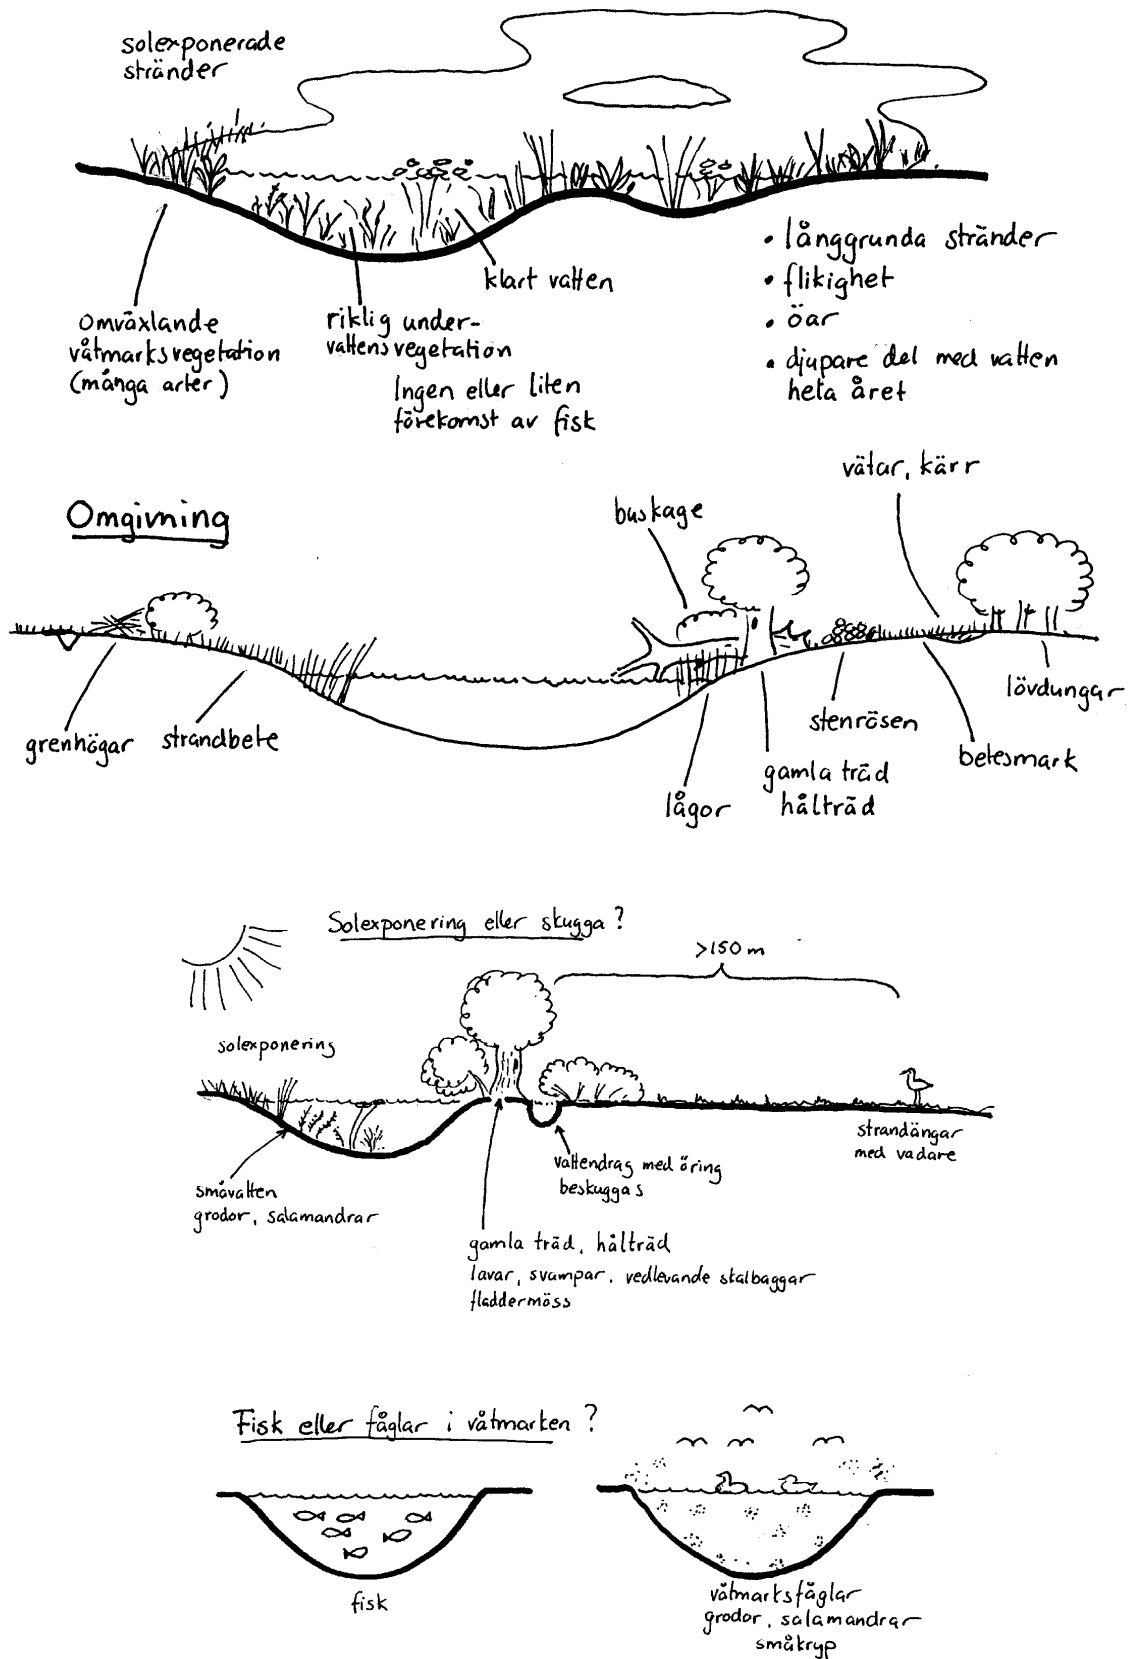 solexponerade
stränder
klart vatten
omväxlande
våtmarksvegetation
(många arter)
riklig under-
vattensvegetation
Ingen eller liten
förekomst av fisk
• långgrunda stränder
• flikighet
• öar
• djupare del med vatten
hela året
Omgivning
buskage
vätar, kärr
grenhögar
strandbete
lågor
gamla träd
hålträd
stenrösen
betesmark
lövdungar
Solexponering eller skugga?
>150 m
solexponering
småvatten
grodor, salamandrar
vattendrag med öring
beskuggas
strandängar
med vadare
gamla träd, hålträd
lavar, svampar, vedlevande skalbaggar
fladdermöss
Fisk eller fåglar i våtmarken?
fisk
våtmarksfåglar
grodor, salamandrar
småkryp